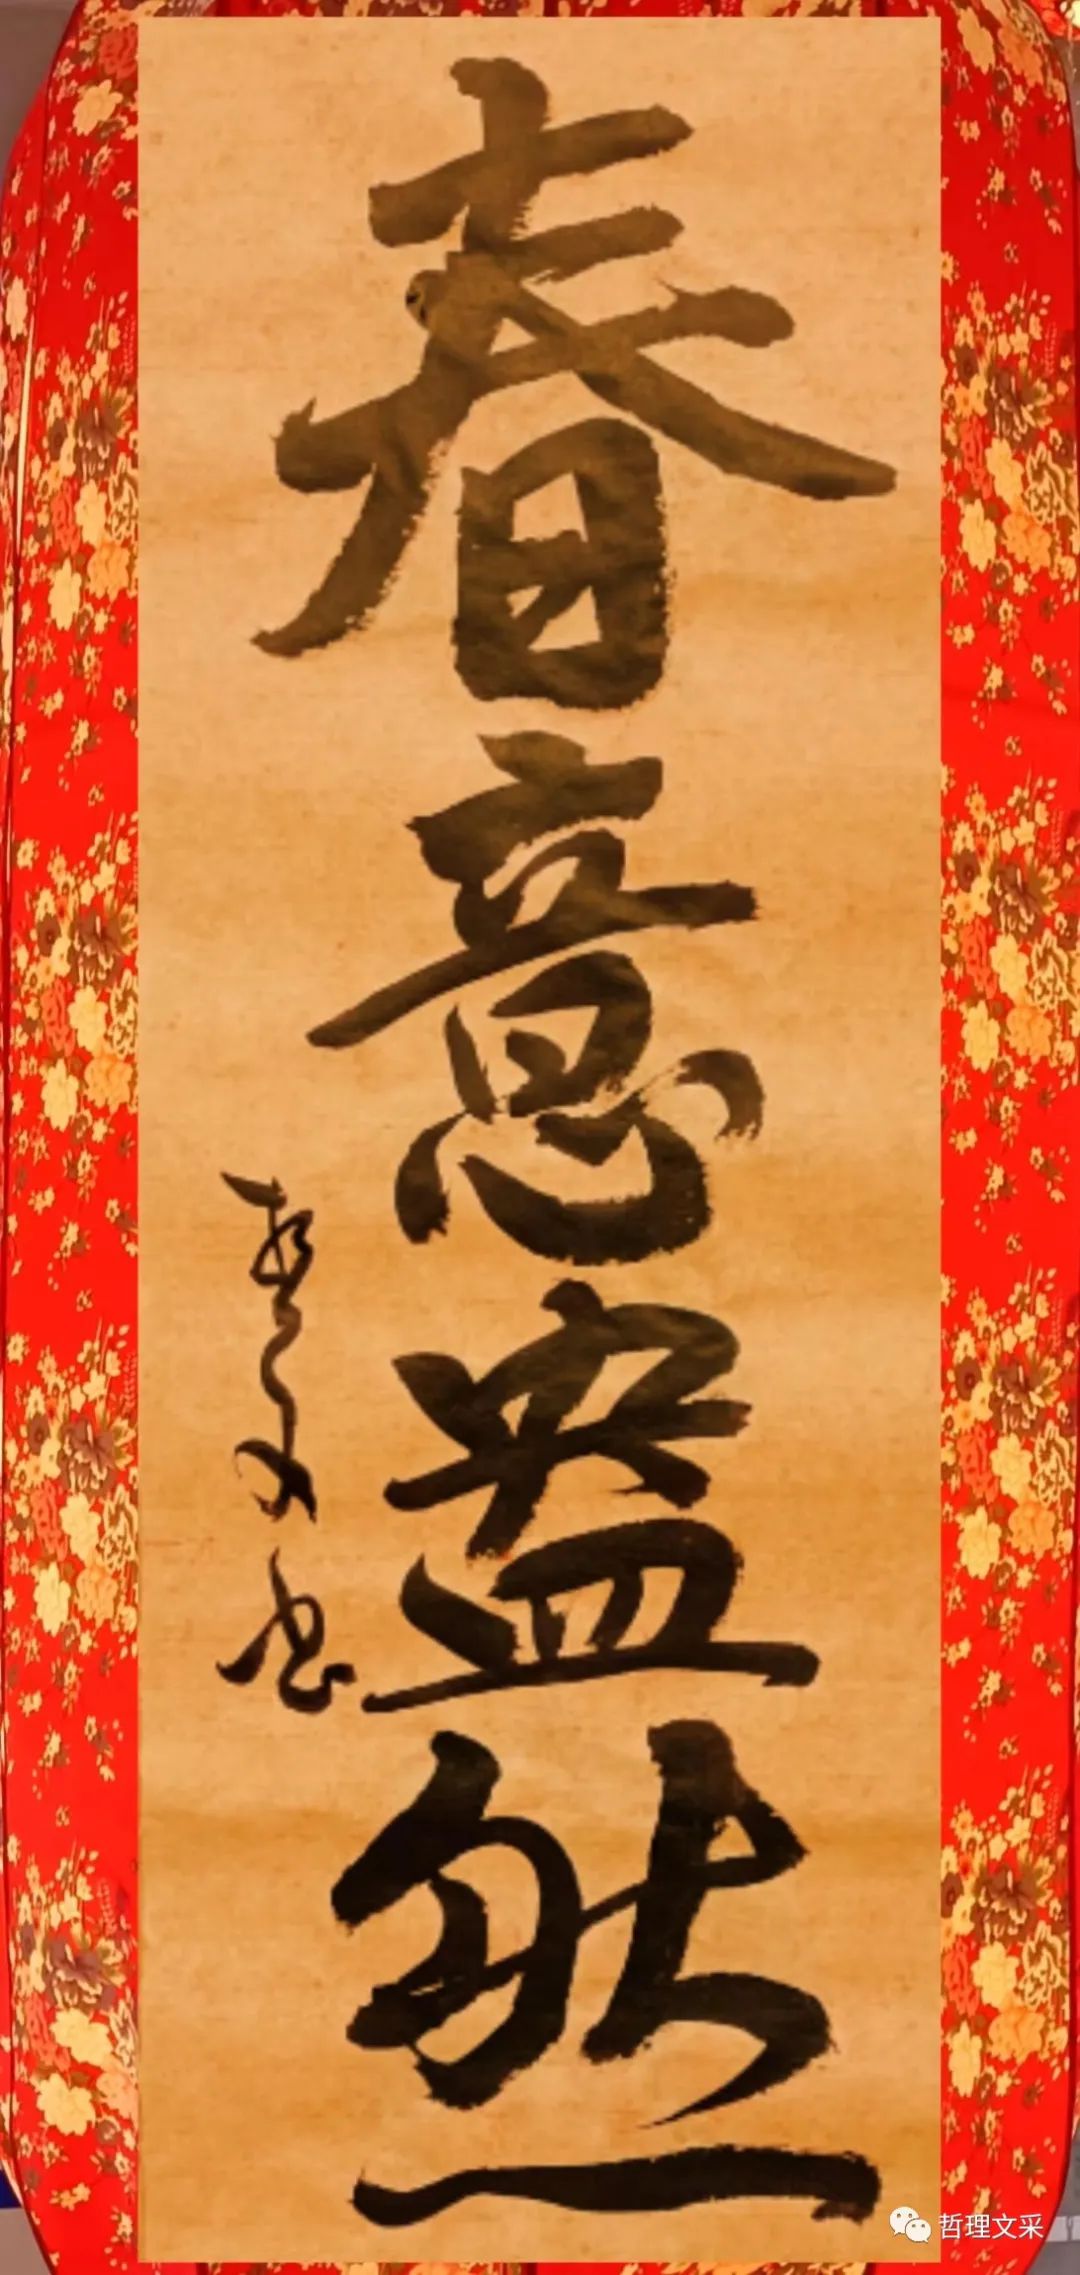 春意盎然
书
哲理文采